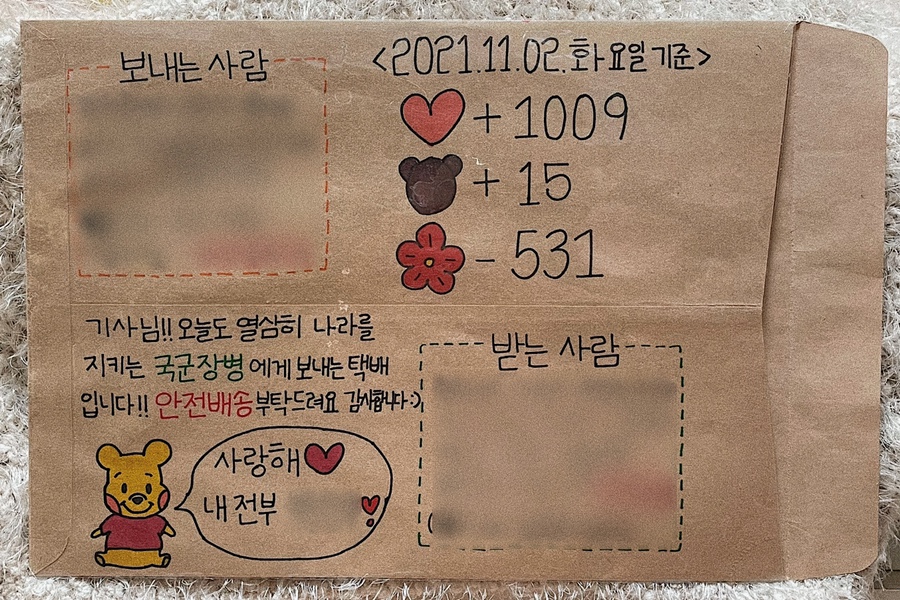 보내는 사람
<2021.11.02.화요일 기준>
+ 1009
+ 15
- 531
기사님!! 오늘도 열심히 나라를
지키는 국군장병 에게 보내는 택배
입니다!! 안전배송 부탁드려요 감사합니다:)
받는 사람
사랑해
내 전부